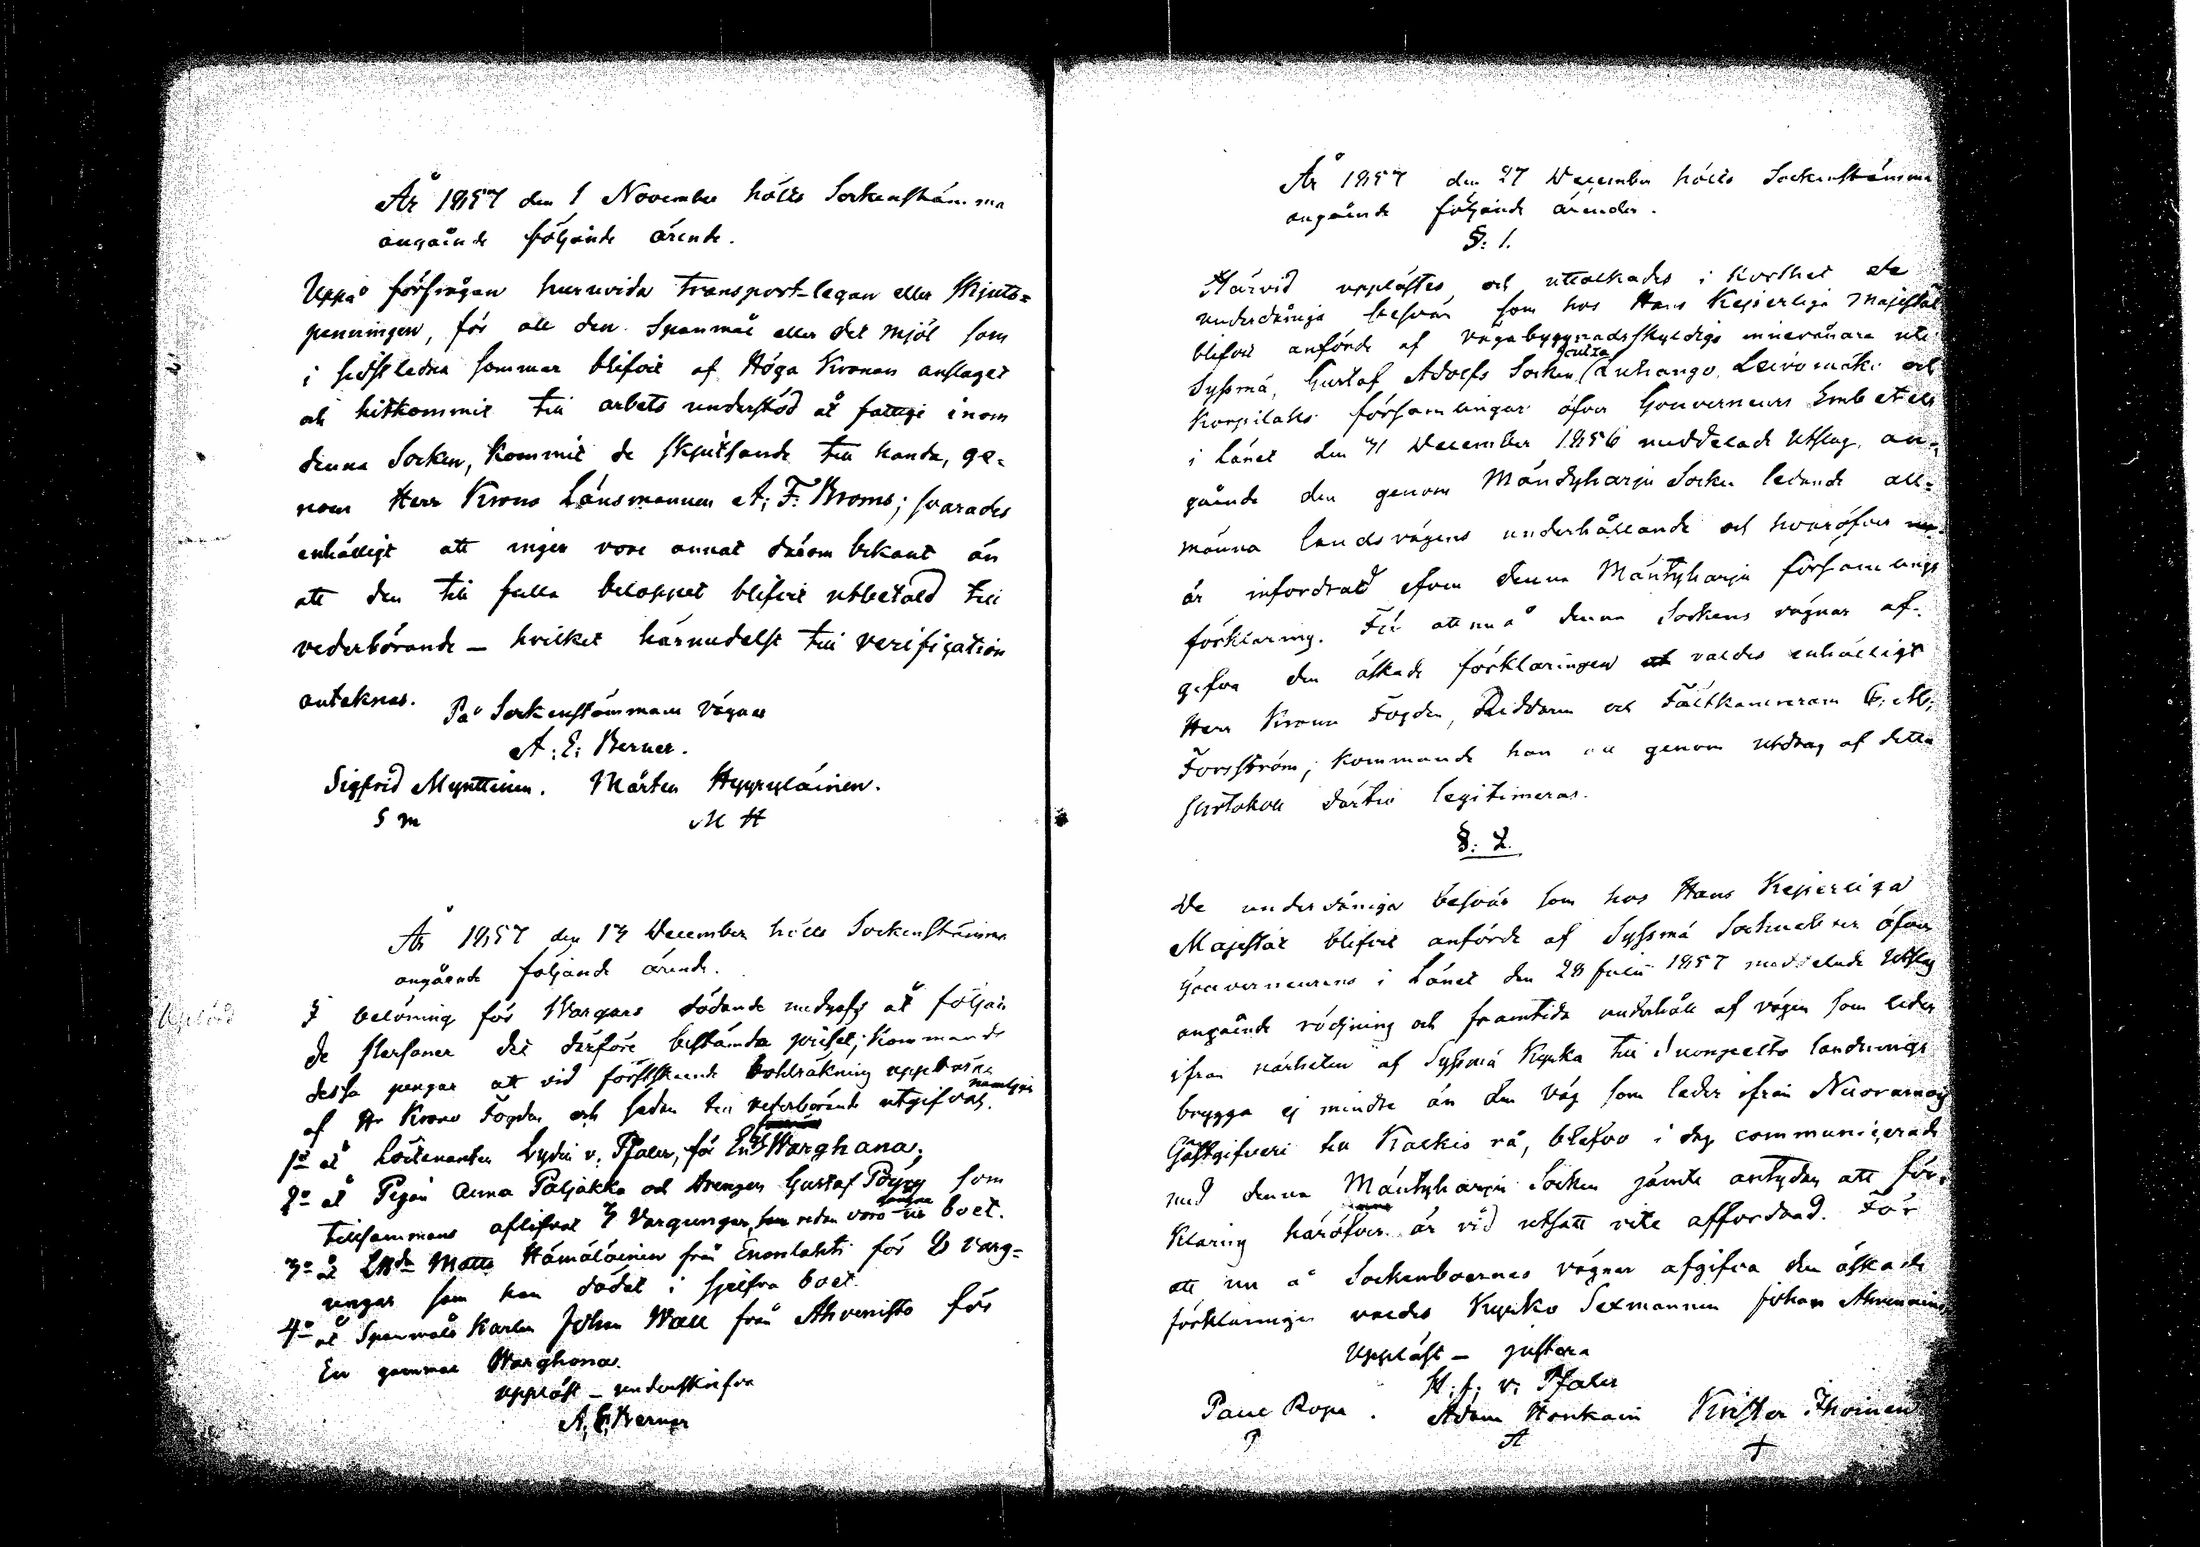 År 1857 den 1 November hölts Sockenstämma
angående följande ärende.
Uppå förfrågan huruvida transport-legan eller skjuts-
penningen, för all den Spanmål eller det mjöl som
i sidstledna sommar blifvit af Höga Kronan anslaget
och hitkommit till arbets understöd åt fattige inom
denna Socken, kommit de skjutsande till handa, ge-
nom Herr Krono Länsmannen A: F: Broms; svarades
enhälligt att ingen vore annat därom bekant än
att den till fulla beloppet blifvit utbetald till
vederbörande — hvilket härmedelst till verification
anteknas.
På Sockenstämmans Vägnar
A: E: Berner.
Sigfrid Mynttinen. Mårten Hyyryläinen.
S M M H
År 1857 den 13 December hölts Sockenstämma
angående följande ärende.
I belöning för Wargars dödande medgafs åt följan
de Personer det därföre bestämda priset; kommande
dessa pengar att vid förstskeende uppbäras
af Hr Krono Fogden och sedan till vederbörande utgifvas, nämligen
1o åt Löitenanten Lydie v. Pfaler, för En Warghona;
2o åt Pigan Anna Paljakka och Drengen Gustaf Pöyry som
tillsammans aflifvat 3 Vargungar, som redan voro ur boet.
3o åt Matts Hämäläinen från Enonlahti för 8 varg-
ungar som han dödat i sjelfva boet.
4o åt Spanmåls Karlen Johan Wall från Ahvenisto för
En gammal Warghona.
uppläst — underskrifva
A: E: Berner
År 1857 den 27 December hölts Sockenstämma
angående följande ärender.
§: 1.
Härvid upplästes och uttolkades i korthet de
underdåniga besvär som hos Hans Kejserliga Majestät
blifvit anförde af vägabyggnadsskyldige innevånare uti
Syssmä, Gustaf Adolfs Socken, Luhango, Leivomäki och
Korpilaks församlingar öfver Gouverneurs Embetets
i länet den 31 December 1856 meddelade Utslag, an-
gående den genom Mändyharju Socken ledande all-
männa landsvägens underhållande och hvaröfver
är infordrad äfven denna Mäntyharju församlings
förklaring. För att nu å denna Sockens vägnar af-
gifva den äskade förklaringen valdes enhälligt
Herr Krono Fogden, Riddaren och Fältkamreraren G: M:
Forsström; kommande han att genom Utdrag af detta
Protokoll därtill legitimeras.
§: 2.
De underdåniga besvär som hos Hans Kejserliga
Majestät blifvit anförde af Syssmä Sockneboer öfver
Gouverneurens i Länet den 28 Julii 1857 meddelade Utslag
angående rödjning och framtida underhåll af vägen som leder
ifrån närheten af Syssmä Kyrka till Suonpelto landtnings
brygga ej mindre än den Väg som leder ifrån Nuoramois
Gästgifveri till Kalkis rå, blefvo i dag communicerade
med denna Mäntyharju Socken jämte antydan att för-
klaring häröfver är vid utsatt vite affordrad. För
att nu å Sockenboernes vägnar afgifva den äskade
förklaringen valdes Kyrko Sexmannen Johan Ahvenainen
Uppläst — justera
H: J: v: Pfaler
Paul Ropa. Adam Honkain Krister Ihoinen
P A +